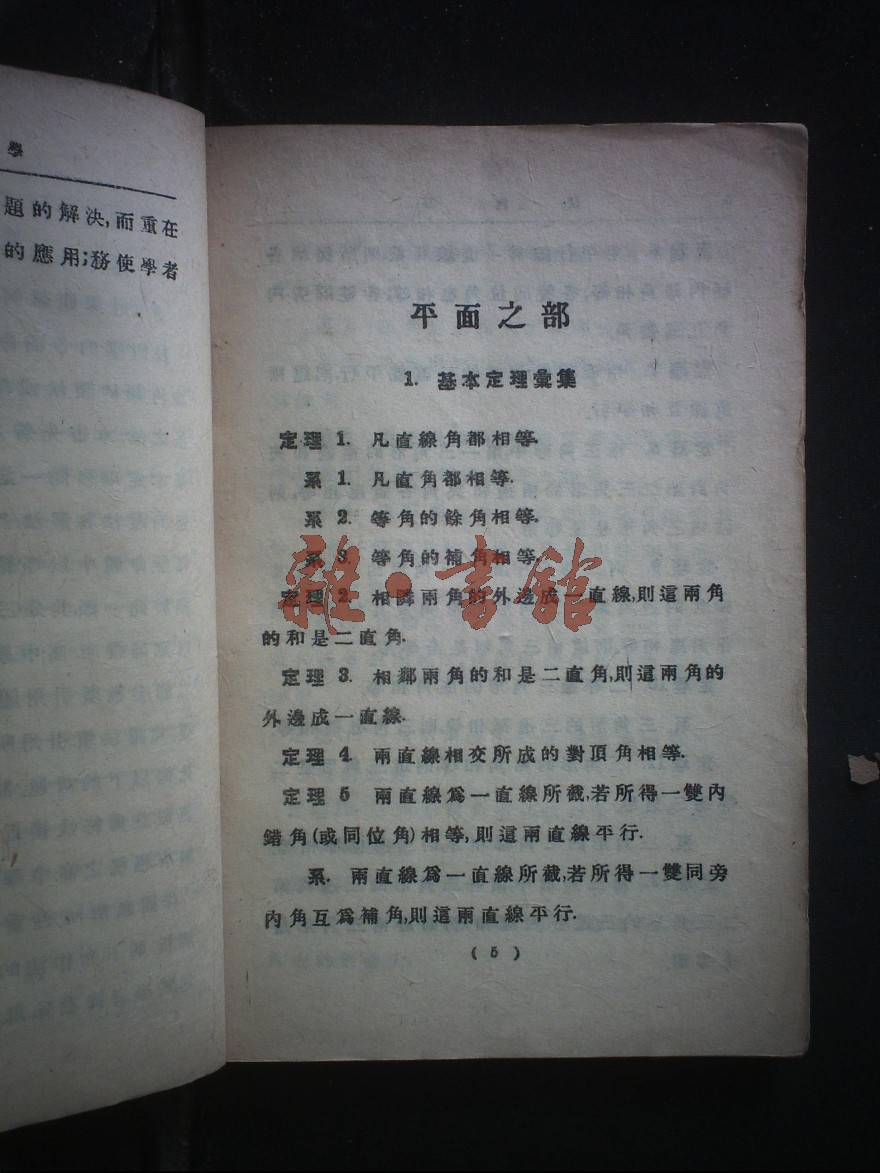 學
題的解決,而重在
的應用;務使學者
平面之部
1. 基本定理彙集
定理 1. 凡直線角都相等.
系 1. 凡直角都相等.
系 2. 等角的餘角相等.
系 3. 等角的補角相等.
定理 2. 相隣兩角的外邊成一直線,則這兩角
的和是二直角.
定理 3. 相鄰兩角的和是二直角,則這兩角的
外邊成一直線.
定理 4. 兩直線相交所成的對頂角相等.
定理 5 兩直線爲一直線所截,若所得一雙內
錯角(或同位角)相等,則這兩直線平行.
系. 兩直線爲一直線所截,若所得一雙同旁
內角互爲補角,則這兩直線平行.
( 5 )
雜·書館